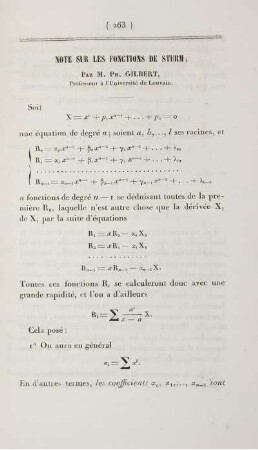 ( 263 )
NOTE SUR LES FONCTIONS DE STURM;
PAR M. PH. GILBERT,
Professeur à l'Université de Louvain.
Soit
X = xⁿ + p₁xⁿ⁻¹ + . . . + pₙ = 0
une équation de degré n; soient a, b,..., l ses racines, et
R₀ = α₀xⁿ⁻¹ + β₀xⁿ⁻² + γ₀xⁿ⁻³ + . . . + λ₀,
R₁ = α₁xⁿ⁻¹ + β₁xⁿ⁻² + γ₁xⁿ⁻³ + . . . + λ₁,
. . . . . . . . . . . . . . . . . . . . . . . . . . . .
Rₙ₋₁ = αₙ₋₁xⁿ⁻¹ + βₙ₋₁xⁿ⁻² + γₙ₋₁xⁿ⁻³ + . . . + λₙ₋₁
n fonctions de degré n — 1 se déduisant toutes de la pre-
mière R₀, laquelle n'est autre chose que la dérivée X,
de X, par la suite d'équations
R₁ = xR₀ — α₀X,
R₂ = xR₁ — α₁X,
. . . . . . . . . . . .
Rₙ₋₁ = xRₙ₋₂ — αₙ₋₂X.
Toutes ces fonctions Rᵢ se calculeront donc avec une
grande rapidité, et l'on a d'ailleurs
Rᵢ = ∑ aⁱ/(x — a) X.
Cela posé :
1° On aura en général
αᵢ = ∑ aⁱ.
En d'autres termes, les coefficients α₀, α₁,..., αₙ₋₁ sont